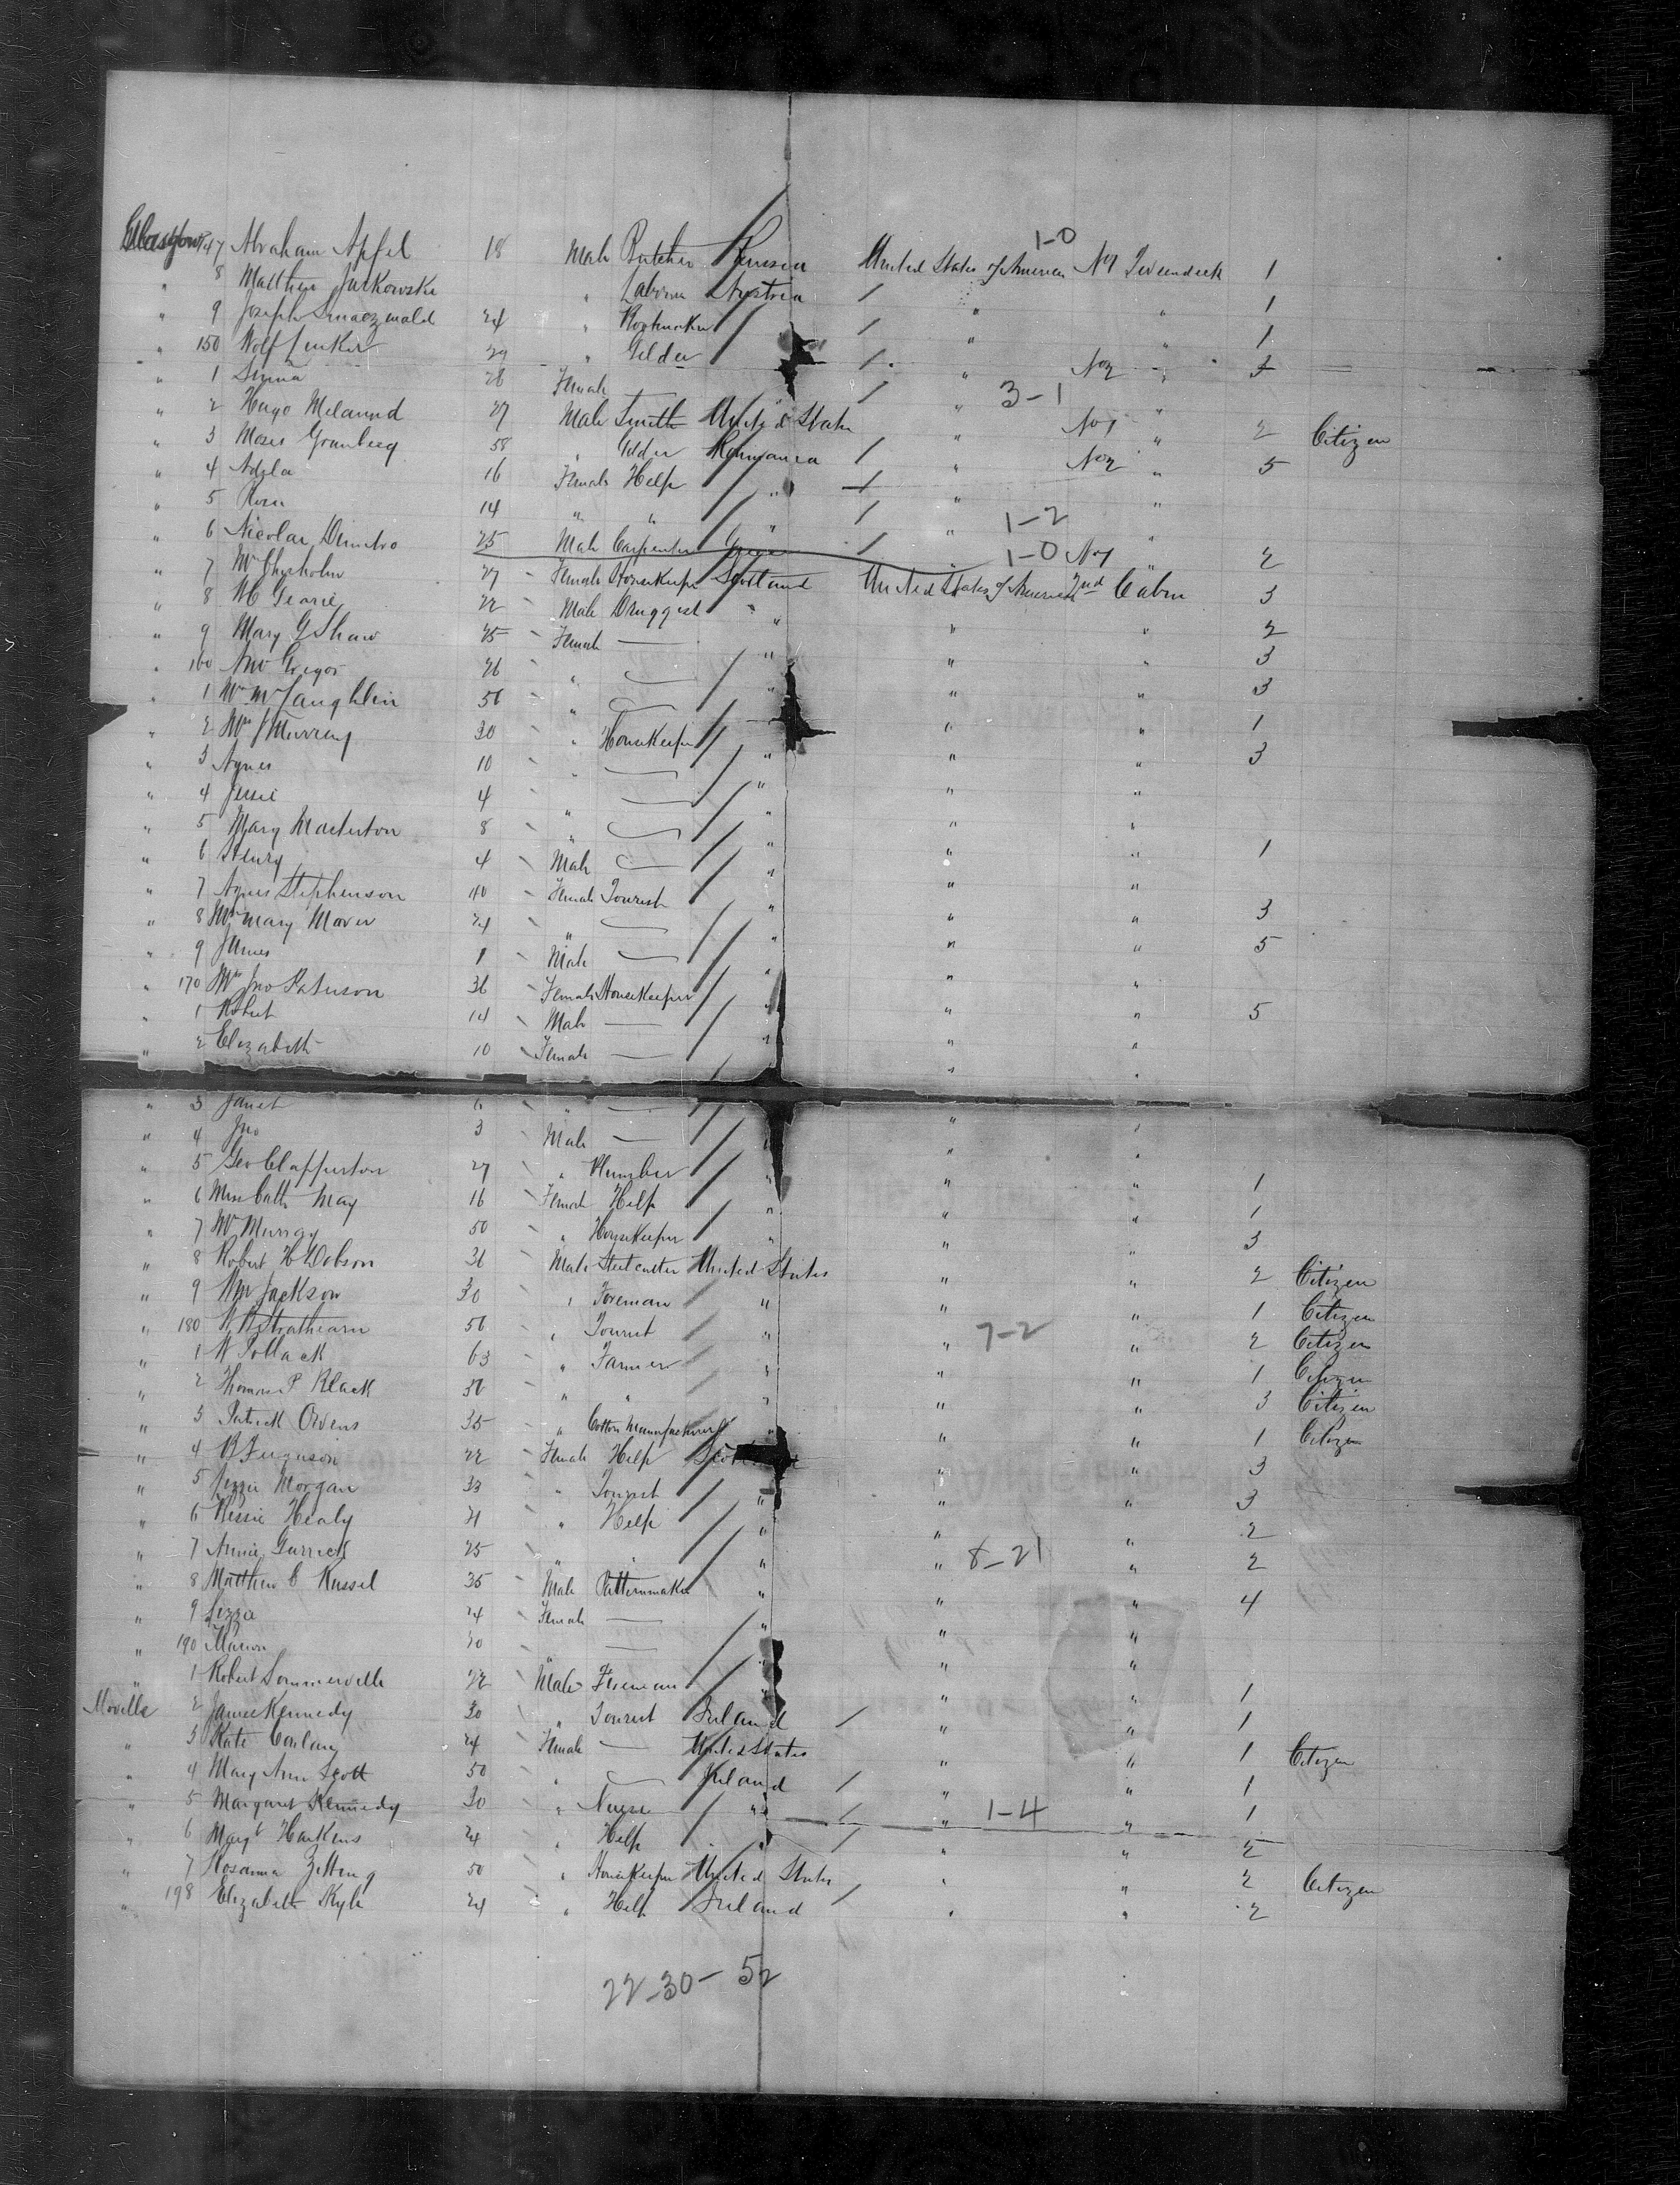 Glasgow 147 Abraham Apfel 18 Male Butcher Russia United States of America No 1 Tweendeck 1
1-0
" 8 Matthew Jutkowski " Laborer Austria / " " 1
" 9 Joseph 24 " / " " 1
" 150 Wolf Junker 29 " Gilder / " No 2 " 3
" 1 28 Female / " "
3-1
" 2 Hugo 27 Male Smith United States " No 1 " 2 Citizen
" 3 Moses Grunberg 58 " Gilder Roumania / " No 2 " 5
" 4 Adela 16 Female Help " / " "
" 5 Rosa 14 " " " / " "
1-2
" 6 Nicolas Demetro 25 Male Carpenter Greece / " No 1 " 2
1-0
" 7 Mrs Chisholm 27 Female Housekeeper Scotland United States of America 2nd Cabin 3
" 8 22 Male Druggist " " " 2
" 9 Mary G Shaw 25 Female — " " " 3
" 160 Gregor 26 " — " " " 3
" 1 Mrs McLaughlin 56 " — " " " 1
" 2 Mrs J Murray 30 " Housekeeper " " " 3
" 3 Agnes 10 " — " " "
" 4 Jessie 4 " — " " "
" 5 Mary Masterton 8 " — " " " 1
" 6 Henry 4 Male — " " "
" 7 Agnes Stephenson 40 Female Tourist " " " 3
" 8 Mrs Mary Maver 24 " — " " " 5
" 9 James 1 Male — " " "
" 170 Mrs Jno Paterson 36 Female Housekeeper " " " 5
" 1 Robert 14 Male — " " "
" 2 Elizabeth 10 Female — " " "
" 3 Janet 6 " — " "
" 4 Jno 3 Male — " " "
" 5 Geo Clapperton 27 " Plumber " " " 1
" 6 Miss Cath May 16 Female Help " " " 1
" 7 Mrs Murray 50 " Housekeeper " " " 3
" 8 Robert H Dobson 36 Male Steel cutter United States " " 2 Citizen
" 9 Wm Jackson 30 " Foreman " " " 1 Citizen
" 180 Strathearn 56 " Tourist " " " 2 Citizen
7-2
" 1 W Pollack 63 " Farmer " " " 1 Citizen
" 2 Thomas P Black 36 " " " " " 3 Citizen
" 3 Patrick Owens 35 " Cotton Manufacturer " " " 1 Citizen
" 4 B Ferguson 22 Female Help Scotland " " 3
" 5 Lizzie Morgan 33 " Tourist " " " 3
" 6 Bessie Healy 21 " Help " " " 2
" 7 Annie Garrick 25 " " " " " 2
8-21
" 8 Matthew C Russel 35 Male Patternmaker " " " 4
" 9 Lizza 24 Female — " " "
" 190 Marion 20 " — " " "
" 1 Robert Sommerville 22 Male Fireman " " " 1
Moville 2 James Kennedy 30 " Tourist Ireland / " " 1
" 3 Kate Conlan 24 Female — United States " " 1 Citizen
" 4 Mary Ann Scott 50 " — Ireland / " " 1
" 5 Margaret Kennedy 30 " Nurse " / " " 1
1-4
" 6 Margt Harkins 24 " Help " / " " 2
" 7 Rosanna 50 " Housekeeper United States " " 2 Citizen
" 198 Elizabeth Kyle 24 " Help Ireland / " " 2
22-30-52